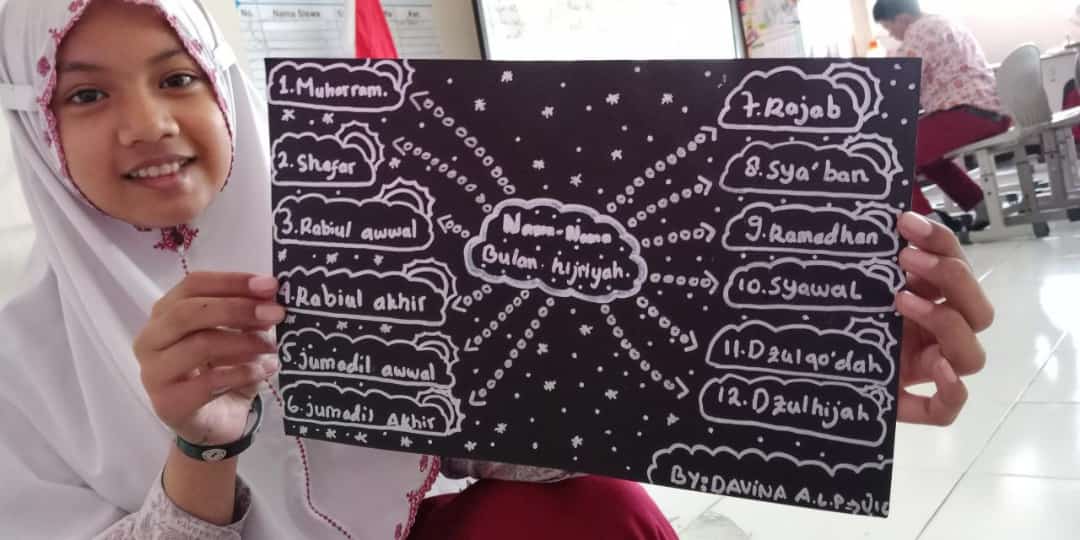 No.
Nama Siswa
Ket.
1. Muharram.
2. Shafar
3. Rabiul awwal
4. Rabiul akhir
5. jumadil awwal
6. jumadil Akhir
Nama-Nama
Bulan hijriyah.
7. Rajab
8. Sya'ban
9. Ramadhan
10. Syawal
11. Dzulqo'dah
12. Dzulhijah
BY: DAVINA A.L.P